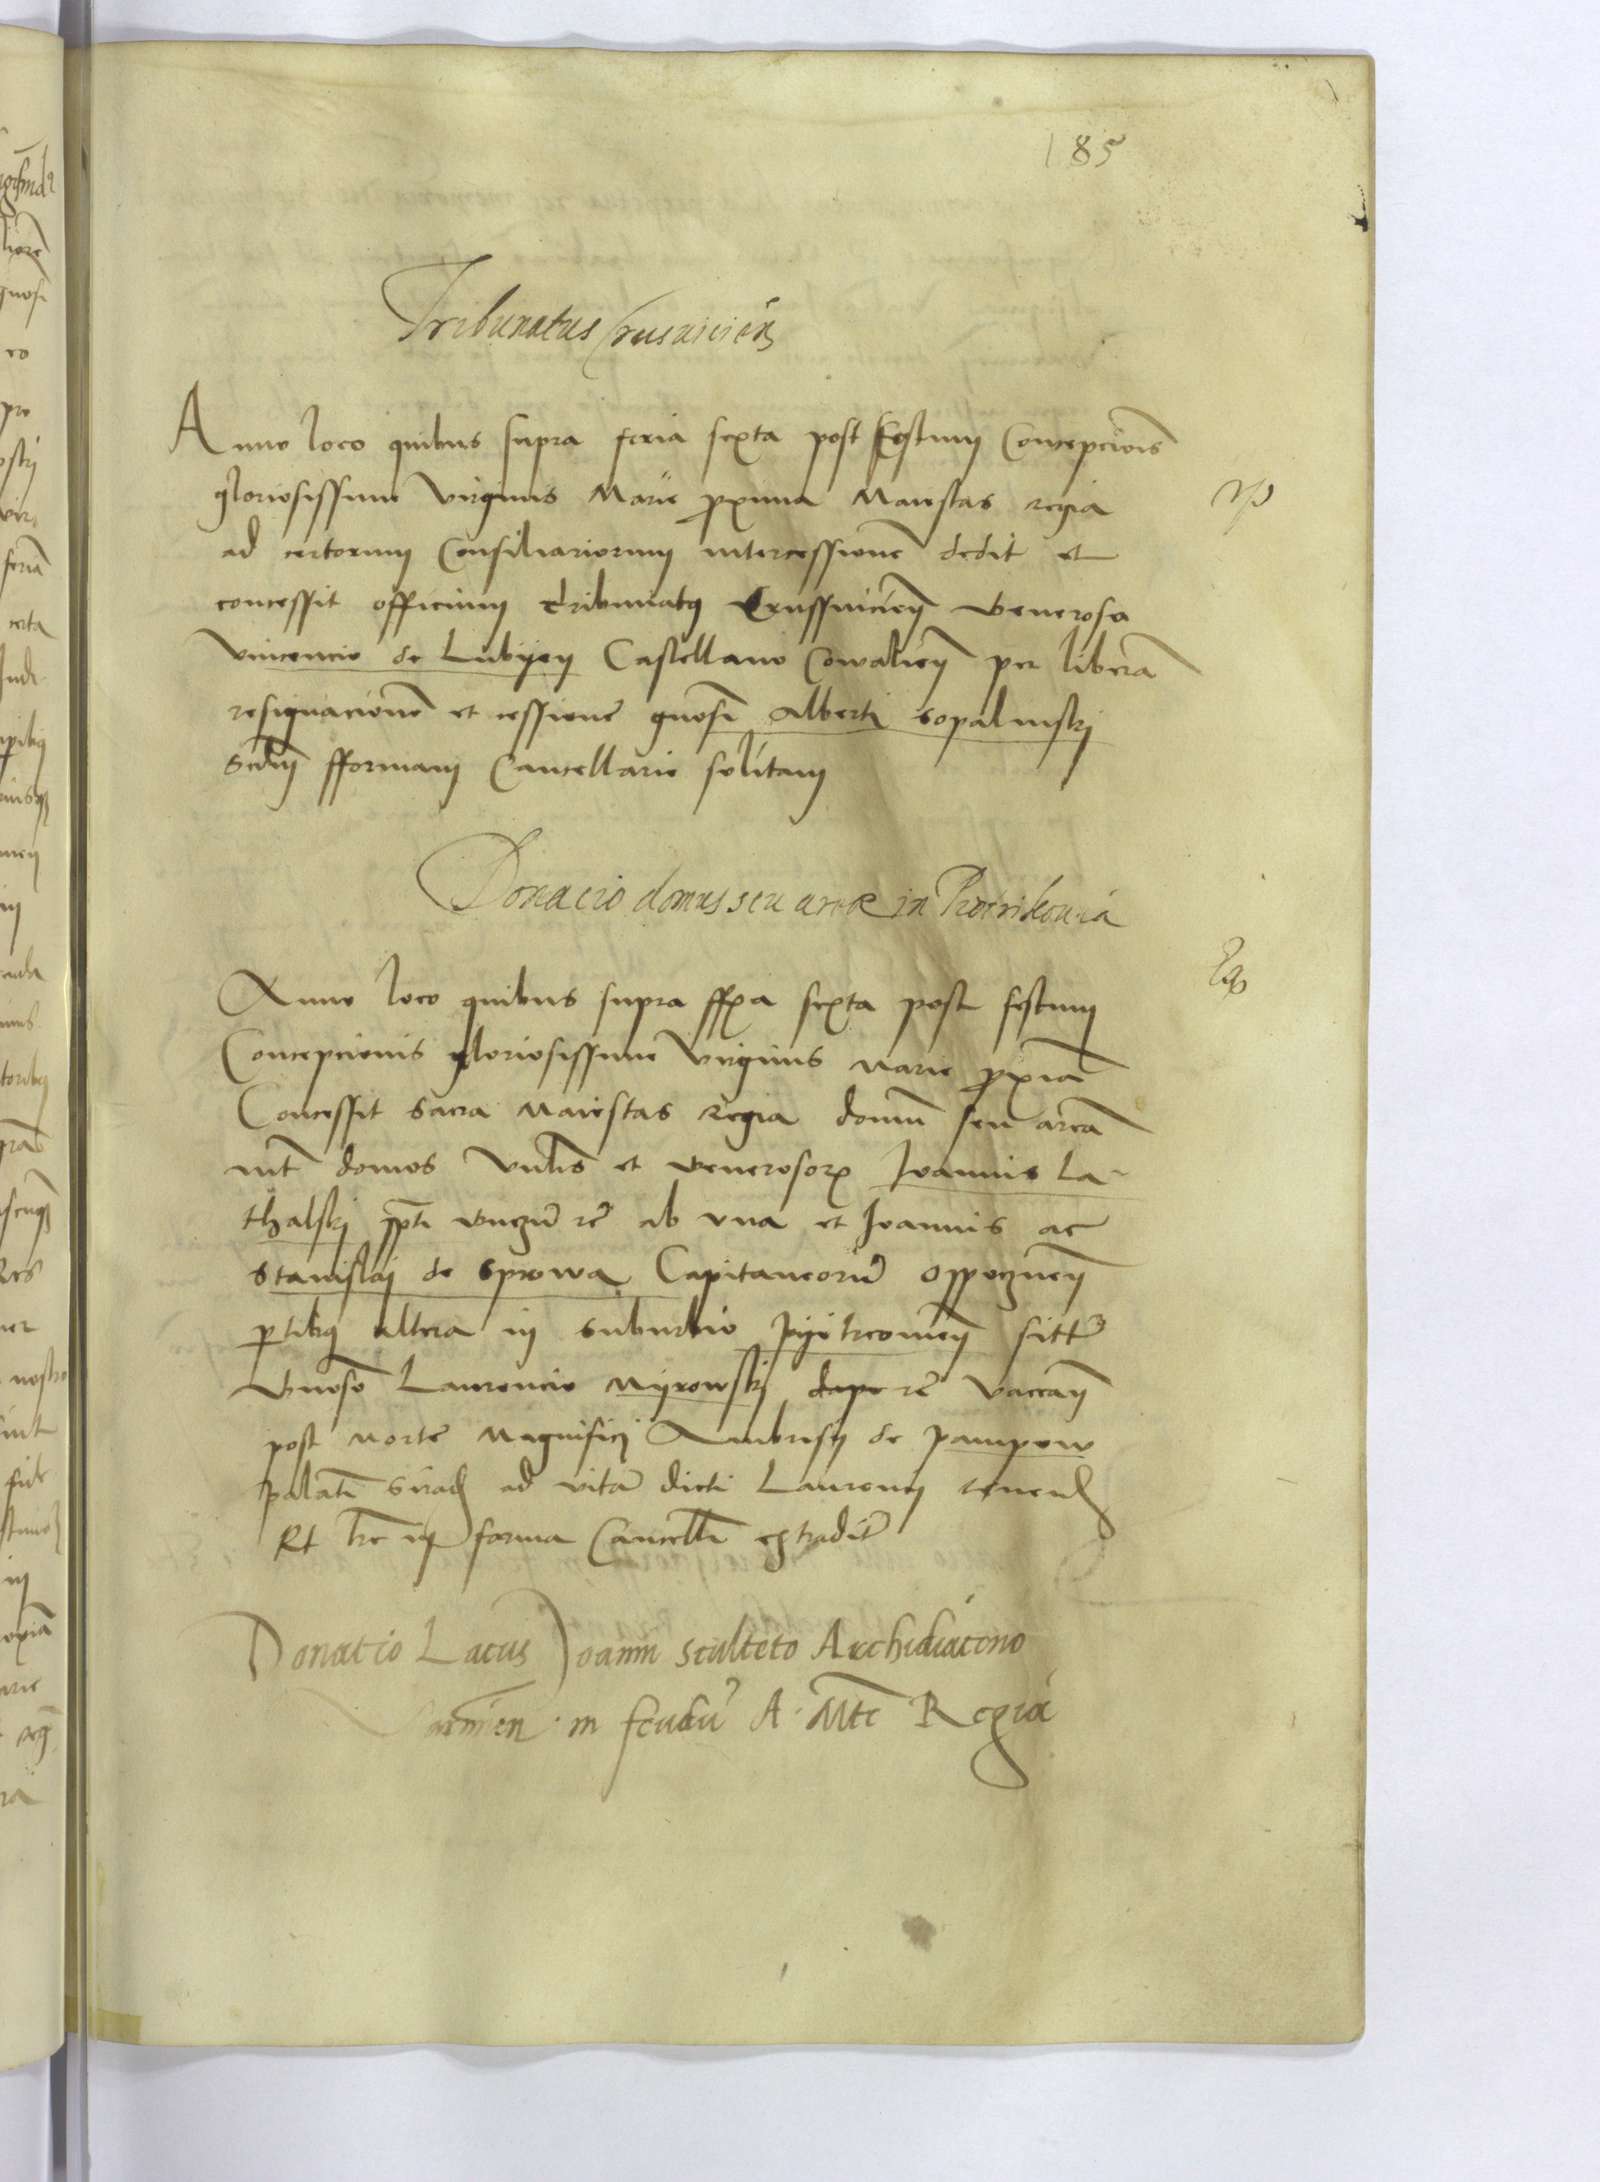 185
Tribunatus Crusvicien
Anno loco quibus supra feria sexta post festum Concepcionis
gloriosissime virginis Marie proxima Maiestas regia
ad certorum Consiliariorum intercessionem dedit et
concessit officium tribunatus Crussviciens Generoso
Vincencio de Lubyen Castellano Cowaliens per liberam
resignacionem et cessionem gnosi Alberti Sopalinski
Scdm fformam Cancellarie solitam
Donacio domus seu areæ in Piotrikouia
Anno loco quibus supra ffia sexta post festum
Concepcionis gloriosissime virginis Marie proxima
Concessit Sacra Maiestas Regia domum seu aream
int domos et Generosorum Joannis La-
thalski ab vna et Joannis ac
Stanislai de Sprowa Capitaneorum Oppocznen
ptibus altera in suburbio Pyitrcouien sitam
Gnoso Laurencio Myrowski vacan
post mortem Magnifici Ambrosii de Pampow
palatini Sirad ad vitam dicti Laurencii tenend
Rt lre in forma Cancell extradit
Donatio Lacus Joanni sculteto Archidiacono
Varmien in feudum A Mte Regia